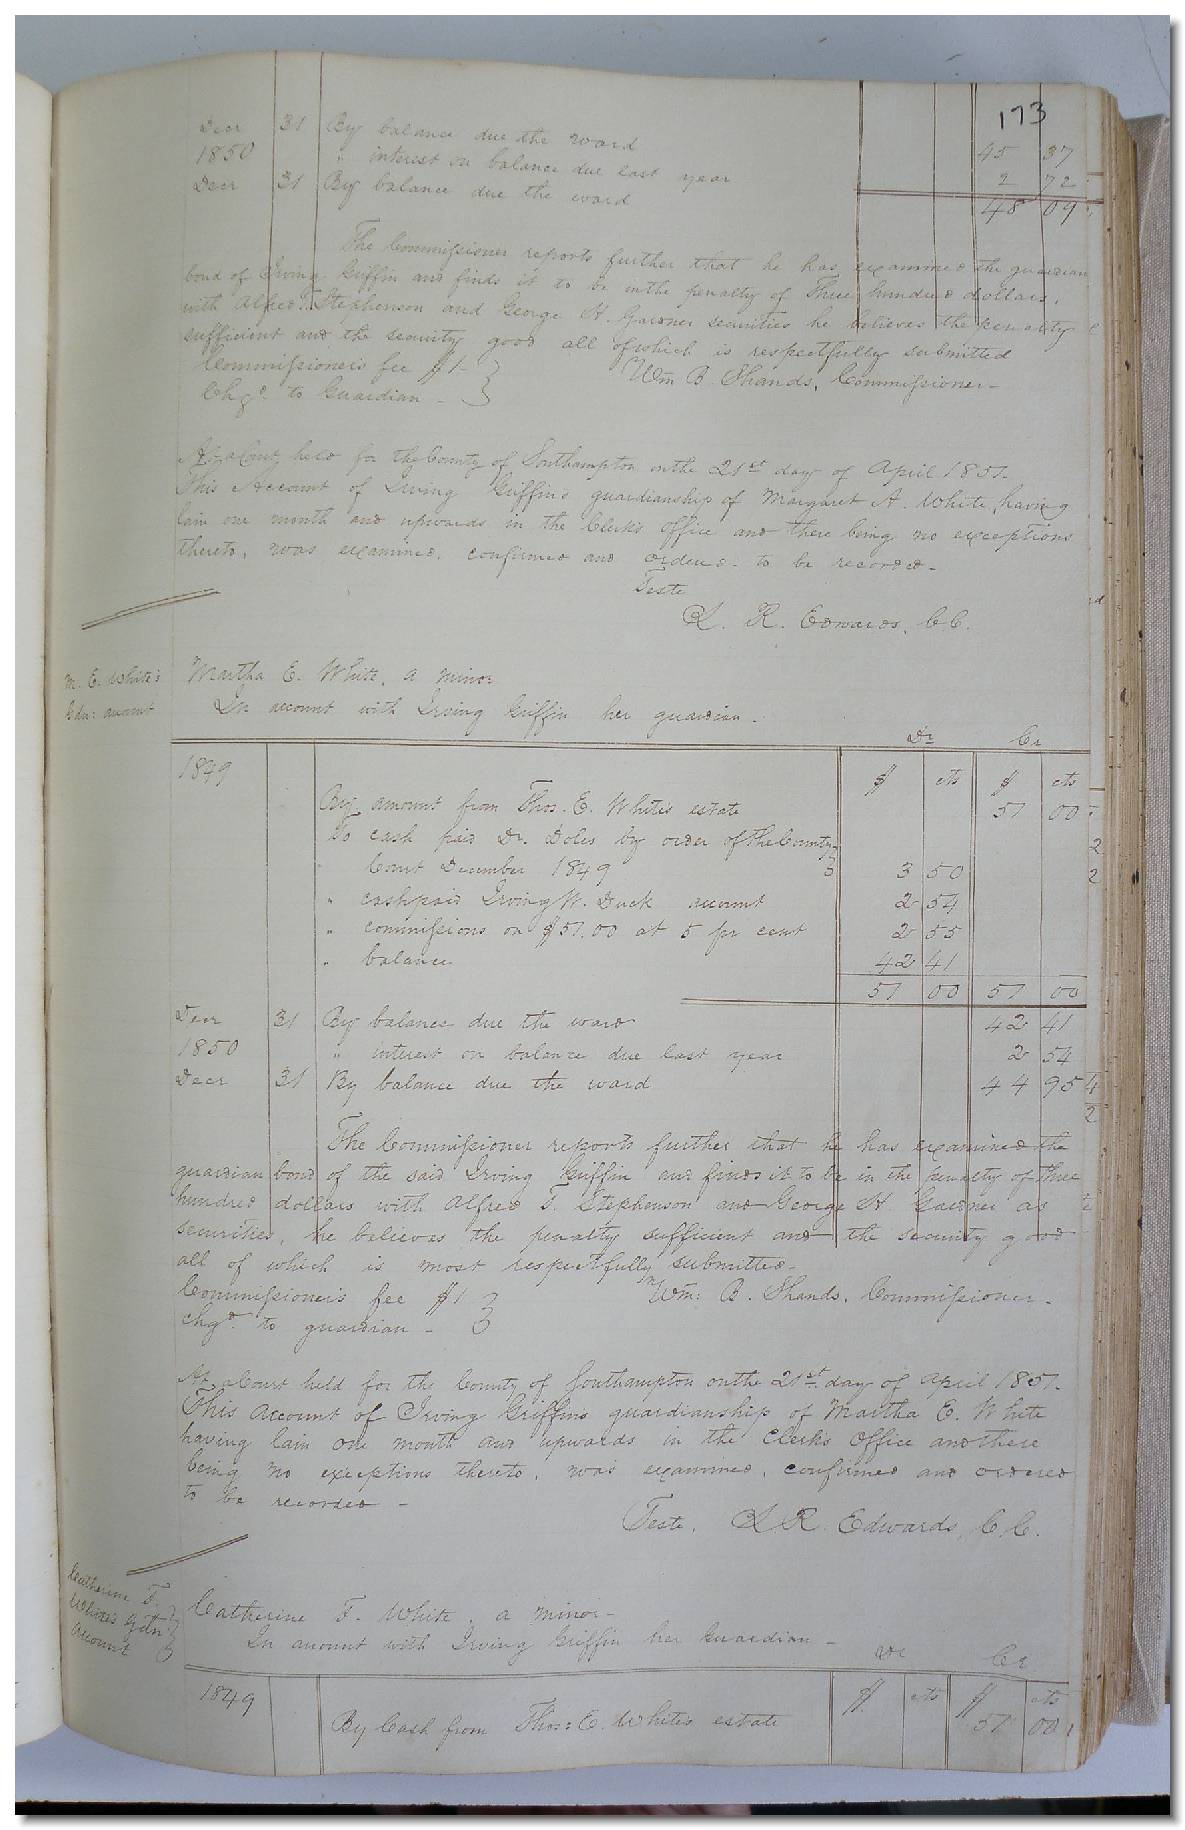 173
Decr 31 By balance due the ward 45 37
1850 " interest on balance due last year 2 72
Decr 31 By balance due the ward 48 09
The Commissioner reports further that he has examined the guardian
bond of Irving Griffin and finds it to be in the penalty of Three hundred dollars,
with Alfred T. Stephenson and George H. Gardner securities he believes the penalty
sufficient and the security good all of which is respectfully submitted
Commissioner's fee $1- } Wm B. Shands, Commissioner-
Chgd. to Guardian - }
At a Court held for the County of Southampton on the 21st day of April 1851.
This Account of Irving Griffin's guardianship of Margaret A. White, having
lain one month and upwards in the Clerk's Office and there being no exceptions
thereto, was examined, confirmed and ordered - to be recorded -
Teste
L. R. Edwards, C.C.
M. E. White's
Gdn: account
Martha E. White, a minor
In account with Irving Griffin her guardian -
Dr Cr
1849 $ cts $ cts
By amount from Thos. E. White's estate 51 00
To cash paid Dr. Doles by order of the County }
Court December 1849 } 3 50
" cash paid Irving W. Duck account 2 54
" commissions on $51.00 at 5 per cent 2 55
" balance 42 41
51 00 51 00
Decr 31 By balance due the ward 42 41
1850 " interest on balance due last year 2 54
Decr 31 By balance due the ward 44 95
The Commissioner reports further that he has examined the
guardian bond of the said Irving Griffin and finds it to be in the penalty of three
hundred dollars with Alfred T. Stephenson and George H. Gardner as
securities, he believes the penalty sufficient and the security good
all of which is most respectfully submitted -
Commissioner's fee $1 } Wm: B. Shands, Commissioner -
chgd. to guardian - }
At a Court held for the County of Southampton on the 21st day of April 1851.
This Account of Irving Griffin's guardianship of Martha E. White
having lain one month and upwards in the Clerk's Office and there
being no exceptions thereto, was examined, confirmed and ordered
to be recorded -
Teste, L R. Edwards, C.C.
Catherine F. }
White's Gdn }
account }
Catherine F. White, a minor -
In account with Irving Griffin her Guardian -
Dr Cr
1849 $ cts $ cts
By Cash from Thos: E. White's estate 51 00